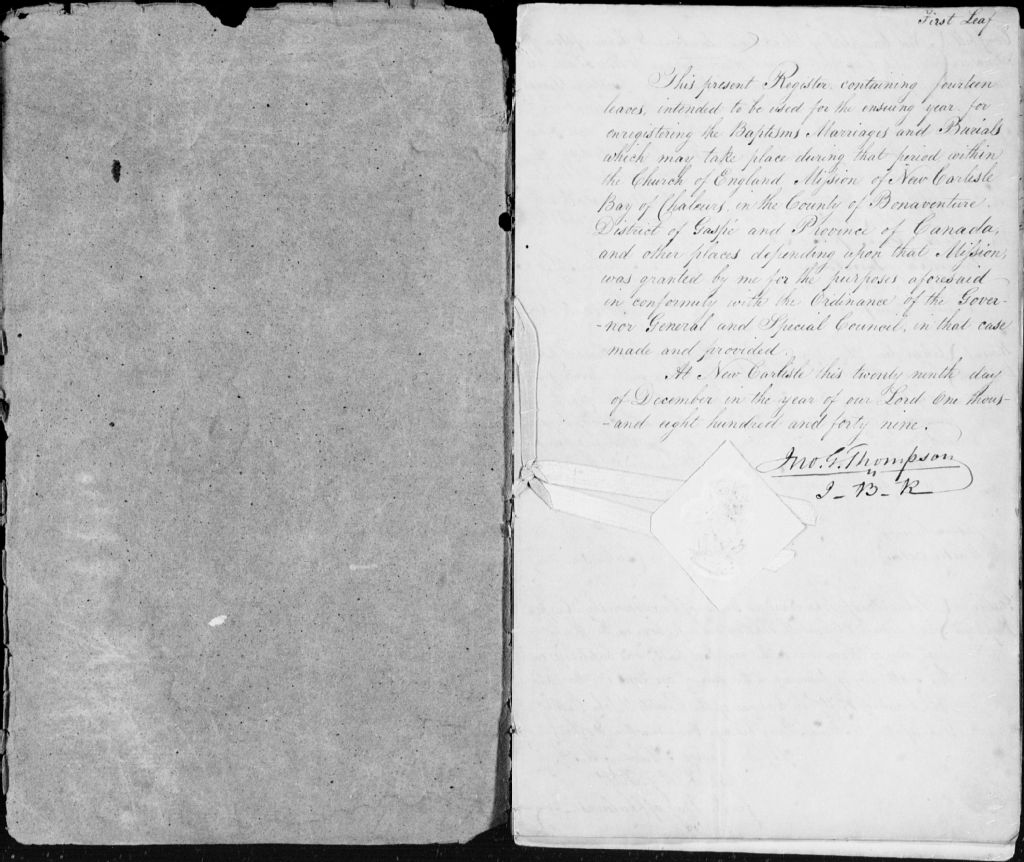 First Leaf
This present Register containing fourteen
leaves, intended to be used for the ensuing year for
enregistering the Baptisms Marriages and Burials
which may take place during that period within
the Church of England Mission of New Carlisle
Bay of Chaleurs, in the County of Bonaventure.
District of Gaspé and Province of Canada,
and other places depending upon that Mission,
was granted by me for the purposes aforesaid
in conformity with the Ordinance of the Gover-
-nor General and Special Council, in that case
made and provided.
At New Carlisle this twenty ninth day
of December in the year of our Lord One thous-
-and eight hundred and forty nine.
Jno. G. Thompson
J - B - R